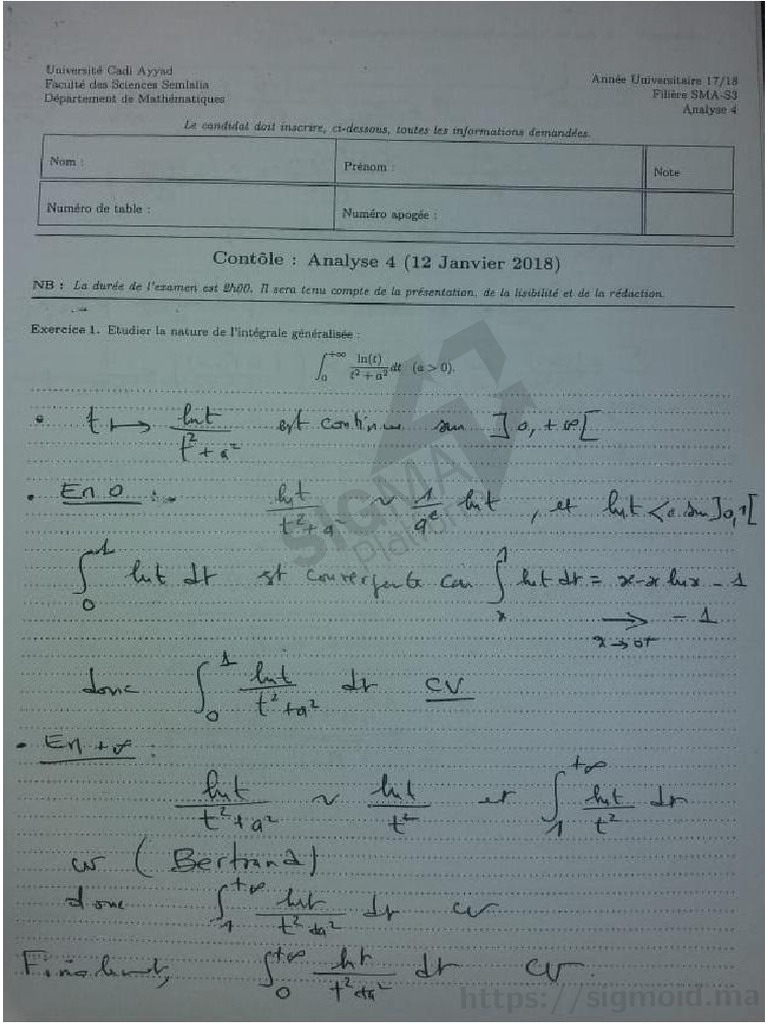 Université Cadi Ayyad
Faculté des Sciences Semlalia
Département de Mathématiques
Année Universitaire 17/18
Filière SMA-S3
Analyse 4
Le candidat doit inscrire, ci-dessous, toutes les informations demandées.
Nom :
Prénom :
Note
Numéro de table :
Numéro apogée :
Contôle : Analyse 4 (12 Janvier 2018)
NB : La durée de l'examen est 2h00. Il sera tenu compte de la présentation, de la lisibilité et de la rédaction.
Exercice 1. Etudier la nature de l'intégrale généralisée :
∫₀^{+∞} ln(t)/(t² + a²) dt (a > 0).
• t ↦ ln t/(t² + a²) est continue sur ]0, +∞[
• En 0 : ln t/(t² + a²) ~ 1/a² ln t, et ln t < 0 sur ]0,1[
∫₀^1 ln t dt est convergente car ∫ₓ^1 ln t dt = x - x ln x - 1
⟶ - 1
x → 0+
donc ∫₀^1 ln t/(t² + a²) dt CV
• En +∞ :
ln t/(t² + a²) ~ ln t/t² et ∫₁^{+∞} ln t/t² dt
cv (Bertrand)
donc ∫₁^{+∞} ln t/(t² + a²) dt cv
Finalement, ∫₀^{+∞} ln t/(t² + a²) dt cv.
SIGMA
platform
https://sigmoid.ma